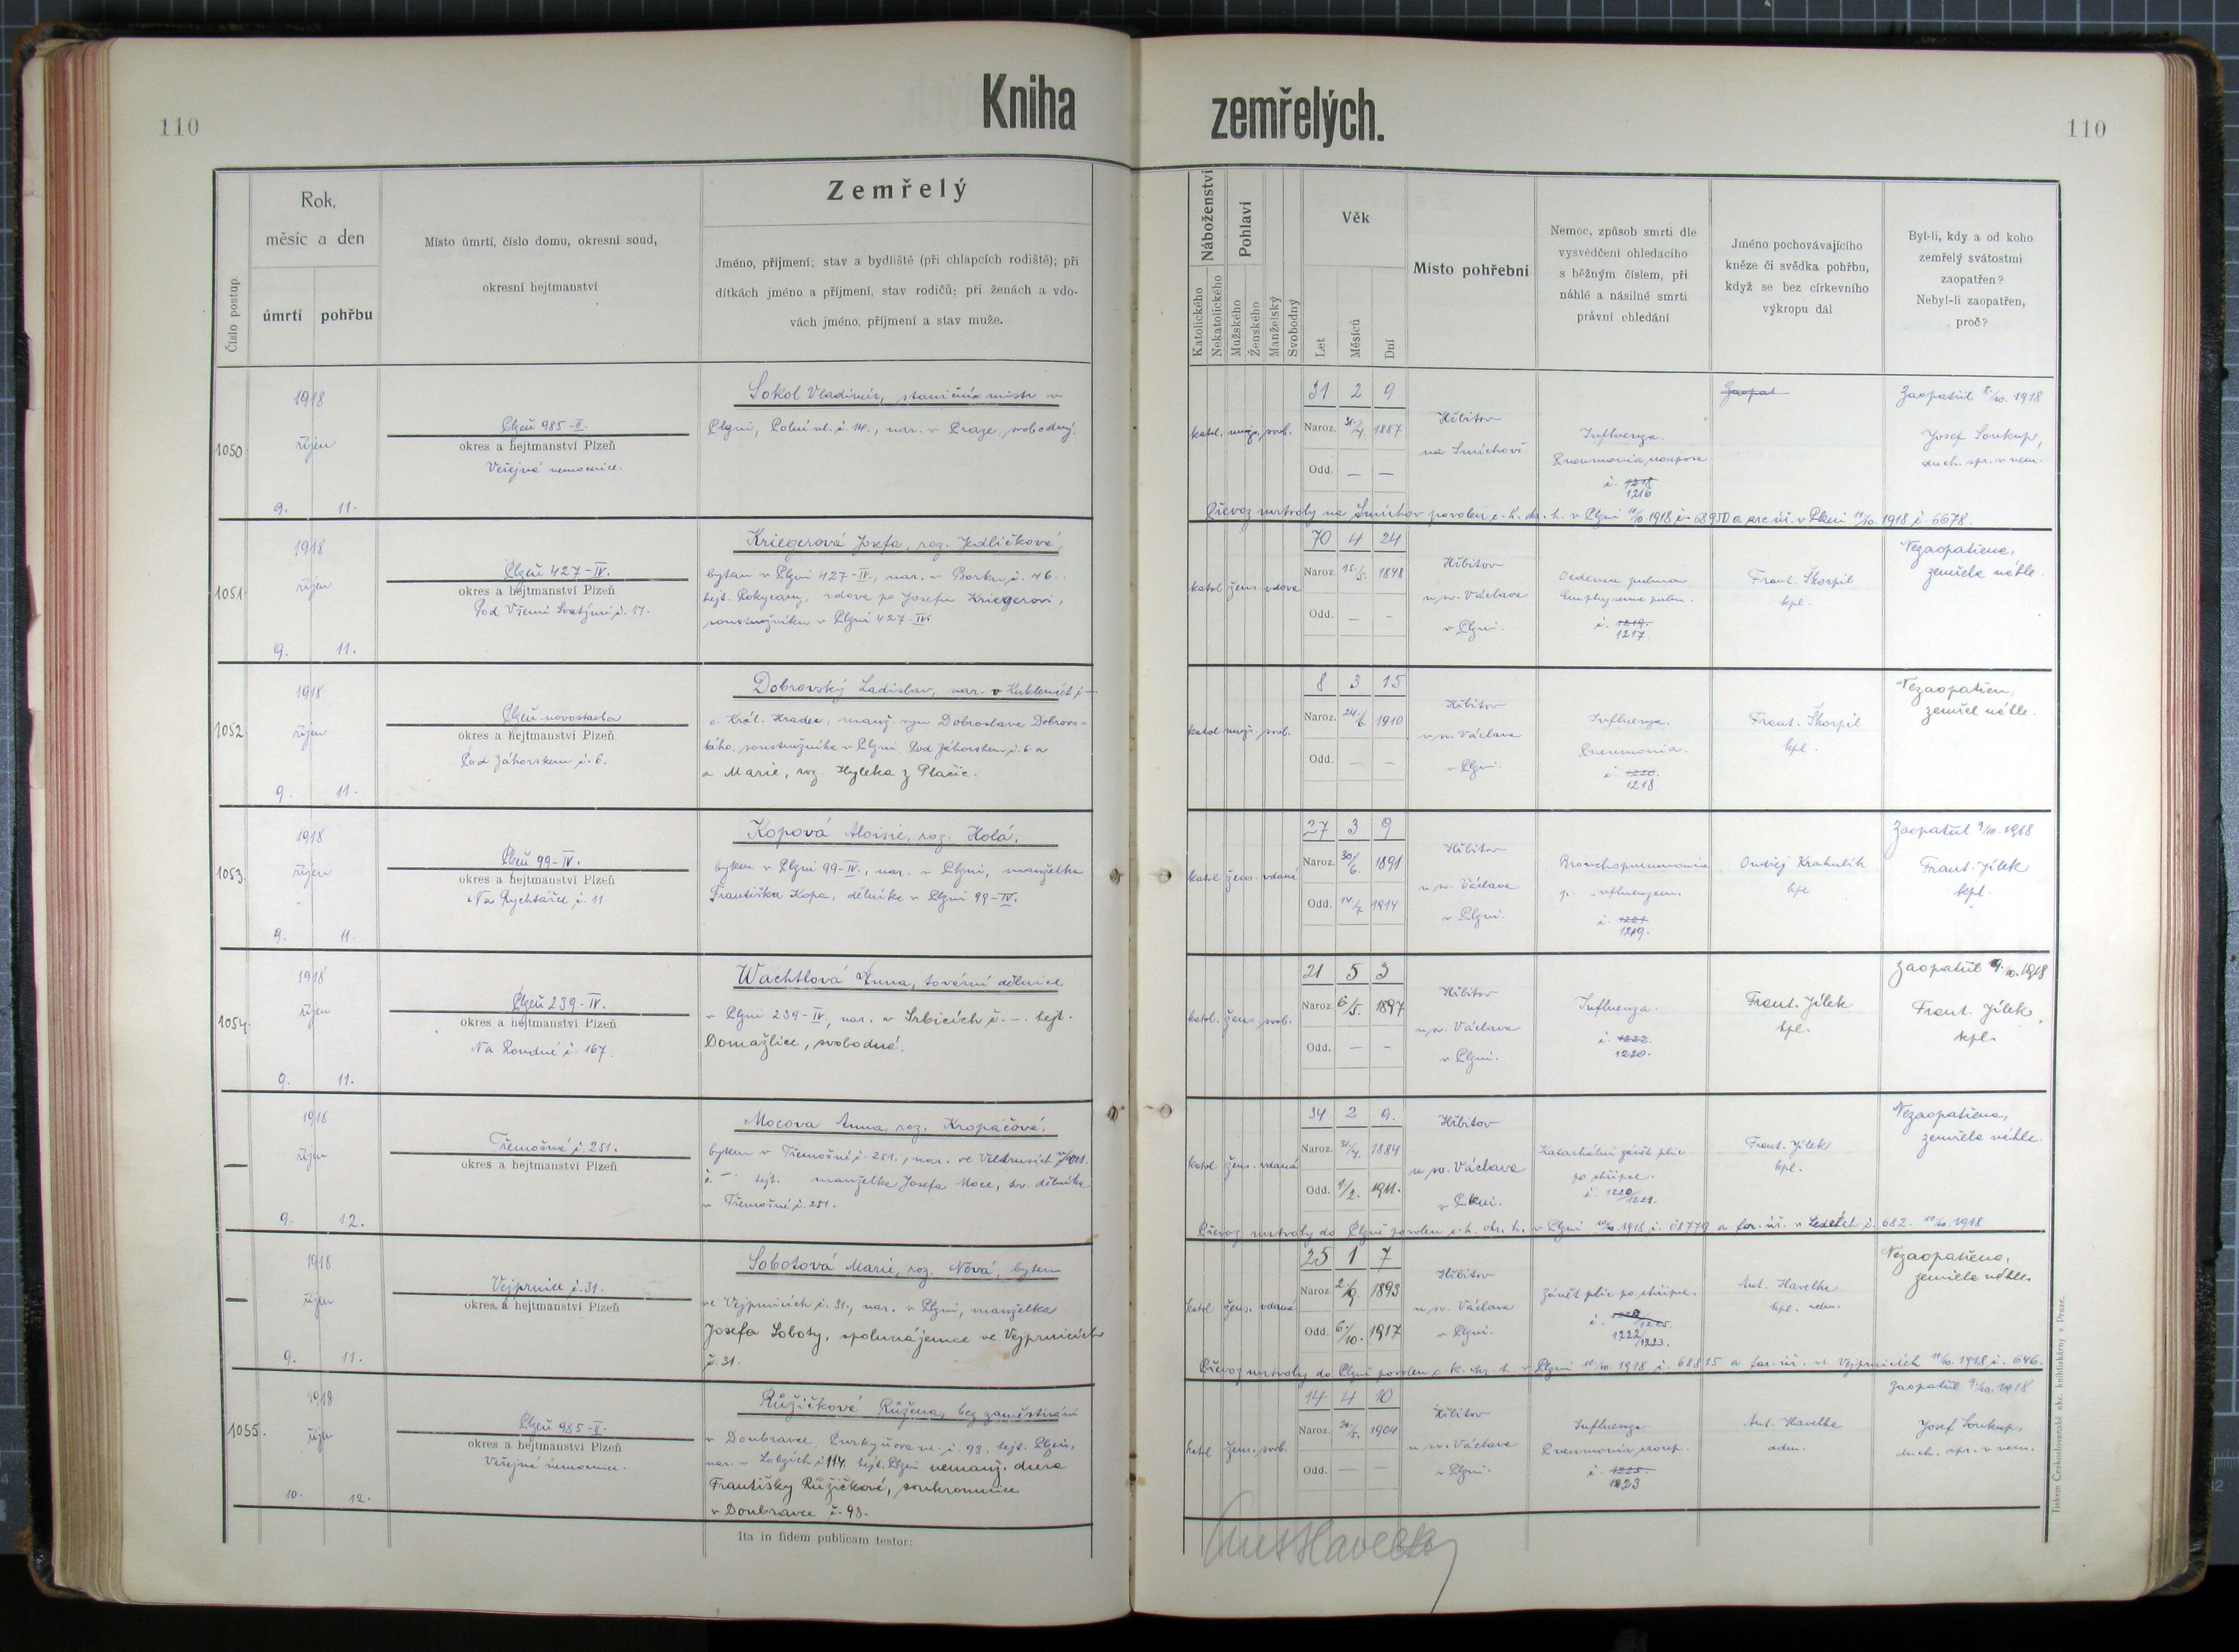 110
Kniha
zemřelých.
110
Číslo postup.
Rok,
měsíc a den
úmrtí
pohřbu
Místo úmrtí, číslo domu, okresní soud,
okresní hejtmanství
Zemřelý
Jméno, příjmení; stav a bydliště (při chlapcích rodiště); při
dítkách jméno a příjmení, stav rodičů; při ženách a vdo-
vách jméno, příjmení a stav muže.
Náboženství
Katolického
Nekatolického
Pohlaví
Mužského
Ženského
Manželský
Svobodný
Věk
Let
Měsíců
Dní
Místo pohřební
Nemoc, způsob smrti dle
vysvědčení ohledacího
s běžným číslem, při
náhlé a násilné smrti
právní ohledání
Jméno pochovávajícího
kněze či svědka pohřbu,
když se bez církevního
výkropu dál
Byl-li, kdy a od koho
zemřelý svátostmi
zaopatřen?
Nebyl-li zaopatřen,
proč?
1050
1918
říjen
9. 11.
Plzeň 985-II.
okres a hejtmanství Plzeň
Veřejná nemocnice.
Sokol Vladimír, staniční mistr v
Plzni, Polní ul. č. 14., nar. v Praze, svobodný.
katol. muž. svob.
31 2 9
Naroz. 31/7. 1887
Odd. — —
Hřbitov
na Smíchově
Influenza.
Pneumonia crouposa
č. 1218
1216
Zaopat
Zaopatřil 8/10. 1918
Josef Soukup,
duch. spr. v nem.
Převoz mrtvoly na Smíchov povolen c. k. okr. h. v Plzni 11/10 1918 č. 68950 a arc. úř. v Plzni 11/10. 1918 č. 6678.
1051
1918
říjen
9. 11.
Plzeň 427-IV.
okres a hejtmanství Plzeň
Pod Všemi Svatými č. 17.
Kriegerová Josefa, roz. Jedličková,
bytem v Plzni 427-IV., nar. v Borku č. 46.
hejt. Rokycany, vdova po Josefu Kriegerovi,
soustružníku v Plzni 427-IV.
katol. žens. vdova
70 4 24
Naroz. 15./5. 1848
Odd. — —
Hřbitov
u sv. Václava
v Plzni.
Oedema pulmon
Emphysema pulm.
č. 1219.
1217.
Frant. Škorpil
kpl.
Nezaopatřena,
zemřela náhle.
1052
1918
říjen
9. 11.
Plzeň novostavba
okres a hejtmanství Plzeň
Pod Záhorskem č. 6.
Dobrovský Ladislav, nar. v Kuklenách č. —
o. Král. Hradec, manž. syn Dobroslava Dobrovs-
kého, soustružníka v Plzni Pod Záhorskem č. 6 a
a Marie, roz. Hyleka z Plačic.
katol. muž. svob.
8 3 15
Naroz. 24/6. 1910
Odd. — —
Hřbitov
u sv. Václava
v Plzni.
Influenza.
Pneumonia.
č. 1220.
1218
Frant. Škorpil
kpl.
Nezaopatřen,
zemřel náhle.
1053.
1918
říjen
9. 11.
Plzeň 99-IV.
okres a hejtmanství Plzeň
Na Rychtářce č. 11
Kopová Aloisie, roz. Holá,
bytem v Plzni 99-IV., nar. v Plzni, manželka
Františka Kopa, dělníka v Plzni 99-IV.
katol. žens. vdaná
27 3 9
Naroz. 30/6. 1891
Odd. 14./7. 1914
Hřbitov
u sv. Václava
v Plzni.
Bronchopneumonia
p. influenzam.
č. 1221
1219.
Ondřej Krahulík
kpl.
Zaopatřil 9/10. 1918
Frant. Jílek
kpl.
1054.
1918
říjen
9. 11.
Plzeň 239-IV.
okres a hejtmanství Plzeň
Na Roudné č. 167.
Wachtlová Anna, tovární dělnice
v Plzni 239-IV., nar. v Srbicích č. —. hejt.
Domažlice, svobodná.
katol. žens. svob.
21 5 3
Naroz. 6/5. 1897
Odd. — —
Hřbitov
u sv. Václava
v Plzni.
Influenza.
č. 1222.
1220.
Frant. Jílek
kpl.
Zaopatřil 9. 10. 1918
Frant. Jílek,
kpl.
—
1918
říjen
9. 12.
Třemošná č. 251.
okres a hejtmanství Plzeň
Mocova Anna, roz. Kropáčová,
bytem v Třemošné č. 251., nar. ve
č. — hejt. manželka Josefa Moce, tov. dělníka
v Třemošné č. 251.
katol. žens. vdaná
34 2 9.
Naroz. 31/7. 1884
Odd. 9/2. 1911.
Hřbitov
u sv. Václava
v Plzni.
Katarhální zánět plic
po chřipce.
č. 1220/1221.
Frant. Jílek
kpl.
Nezaopatřena,
zemřela náhle.
Převoz mrtvoly do Plzně povolen c. k. okr. h. v Plzni 10/10. 1918 č. 68779 a far. úř. v Ledcích č. 682. 10/10. 1918
—
1918
říjen
9. 11.
Vejprnice č. 31.
okres. a hejtmanství Plzeň
Sobotová Marie, roz. Nová, bytem
ve Vejprnicích č. 31., nar. v Plzni, manželka
Josefa Soboty, spolunájemce ve Vejprnicích
č. 31.
katol. žens. vdaná
25 1 7
Naroz. 2/9. 1893
Odd. 6./10. 1917
Hřbitov
u sv. Václava
v Plzni.
Zánět plic po chřipce.
č.
1222/1223.
Ant. Havelka
kpl. adm.
Nezaopatřena,
zemřela náhle.
Převoz mrtvoly do Plzně povolen c. k. okr. h. v Plzni 10/10. 1918 č. 68815 a far. úř. ve Vejprnicích 11/10. 1918 č. 646.
1055.
1918
říjen
10. 12.
Plzeň 985-II.
okres a hejtmanství Plzeň
Veřejná nemocnice.
Růžičková Růžena, bez zaměstnání
v Doubravce, Purkyňova ul. č. 93, hejt. Plzeň,
nar. v Lobzích č. 114. hejt. Plzeň nemanž. dcera
Františky Růžičkové, soukromnice
v Doubravce č. 93.
katol. žens. svob.
14 4 10
Naroz. 30./5. 1904
Odd. — —
Hřbitov
u sv. Václava
v Plzni.
Influenza.
Pneumonia croup.
č. 1225.
1223
Ant. Havelka
adm.
Zaopatřil 9./10. 1918
Josef Soukup,
duch. spr. v nem.
Ita in fidem publicam testor:
Ant Havelka
Tiskem Československé akc. knihtiskárny v Praze.